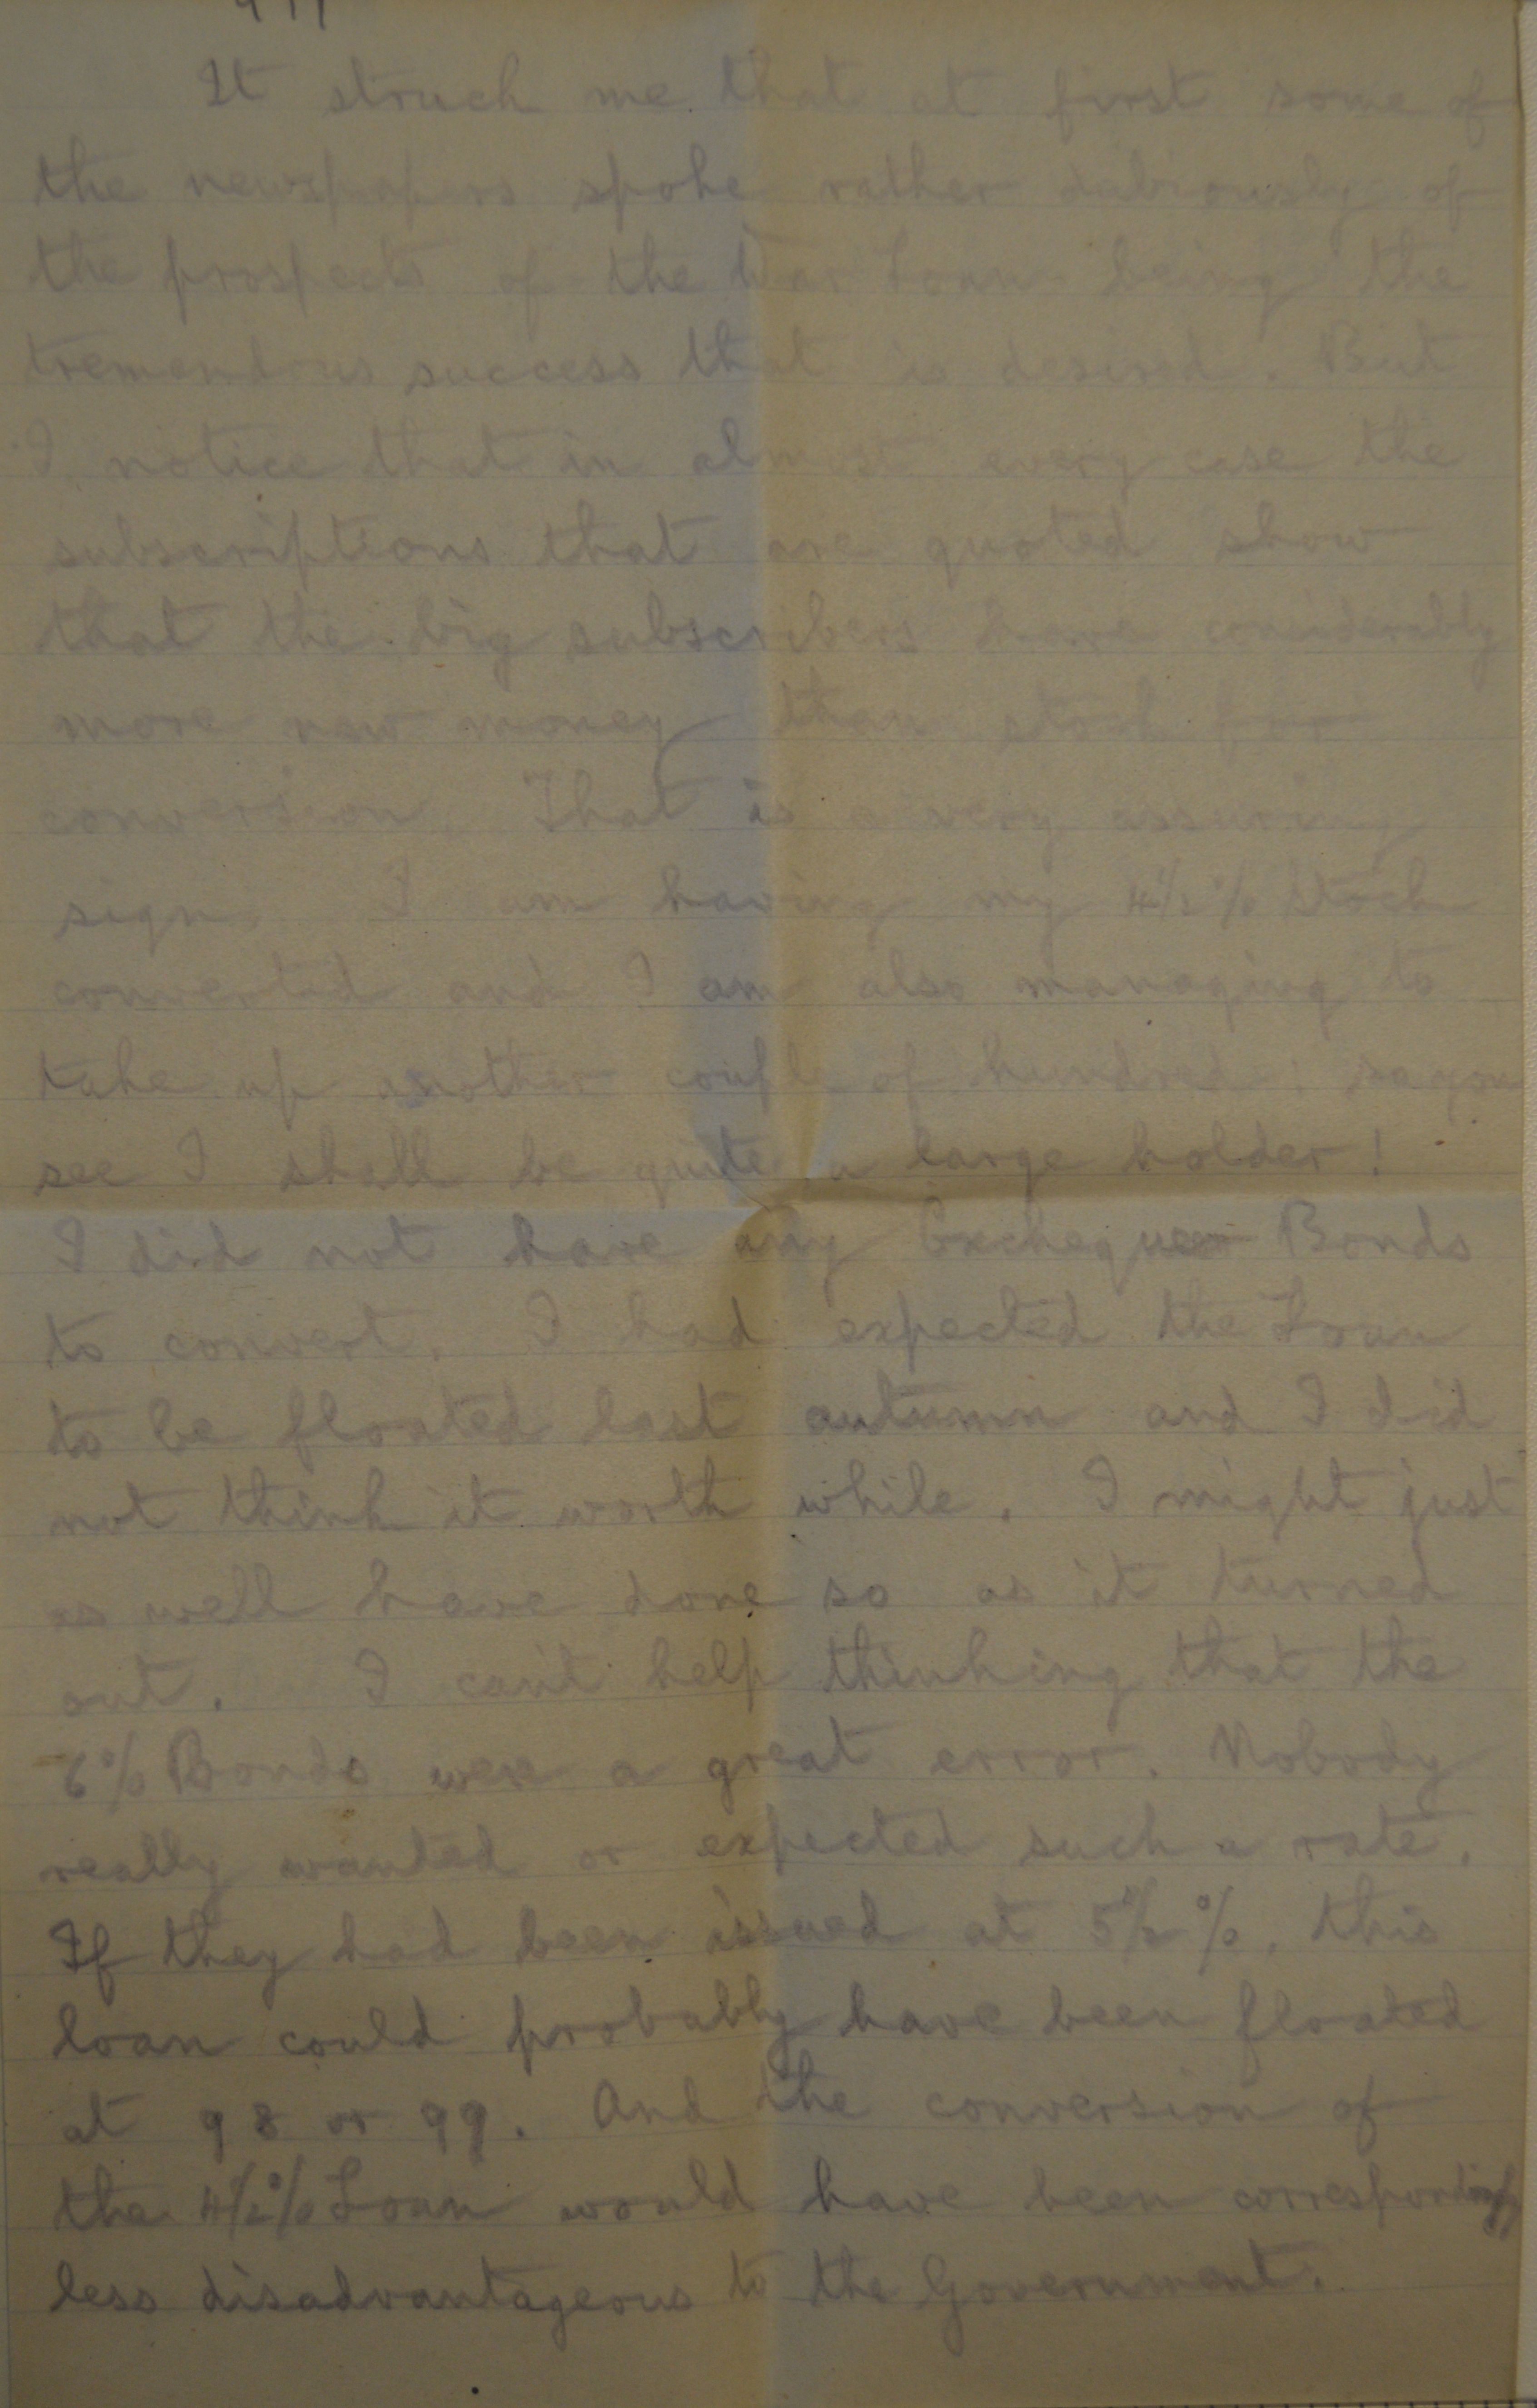 It struck me that at first some of
the newspapers spoke rather dubiously of
the prospects of the War Loan being the
tremendous success that is desired. But
I notice that in almost every case the
subscriptions that are quoted show
that the big subscribers have considerably
more new money than stock for
conversion. That is a very assuring
sign. I am having my 4½% Stock
converted and I am also managing to
take up another couple of hundred: so you
see I shall be quite a large holder!
I did not have any Exchequer Bonds
to convert. I had expected the Loan
to be floated last autumn and I did
not think it worth while. I might just
as well have done so as it turned
out. I can't help thinking that the
6% Bonds were a great error. Nobody
really wanted or expected such a rate.
If they had been issued at 5½%, this
loan could probably have been floated
at 98 or 99. And the conversion of
the 4½% Loan would have been correspondingly
less disadvantageous to the Government.